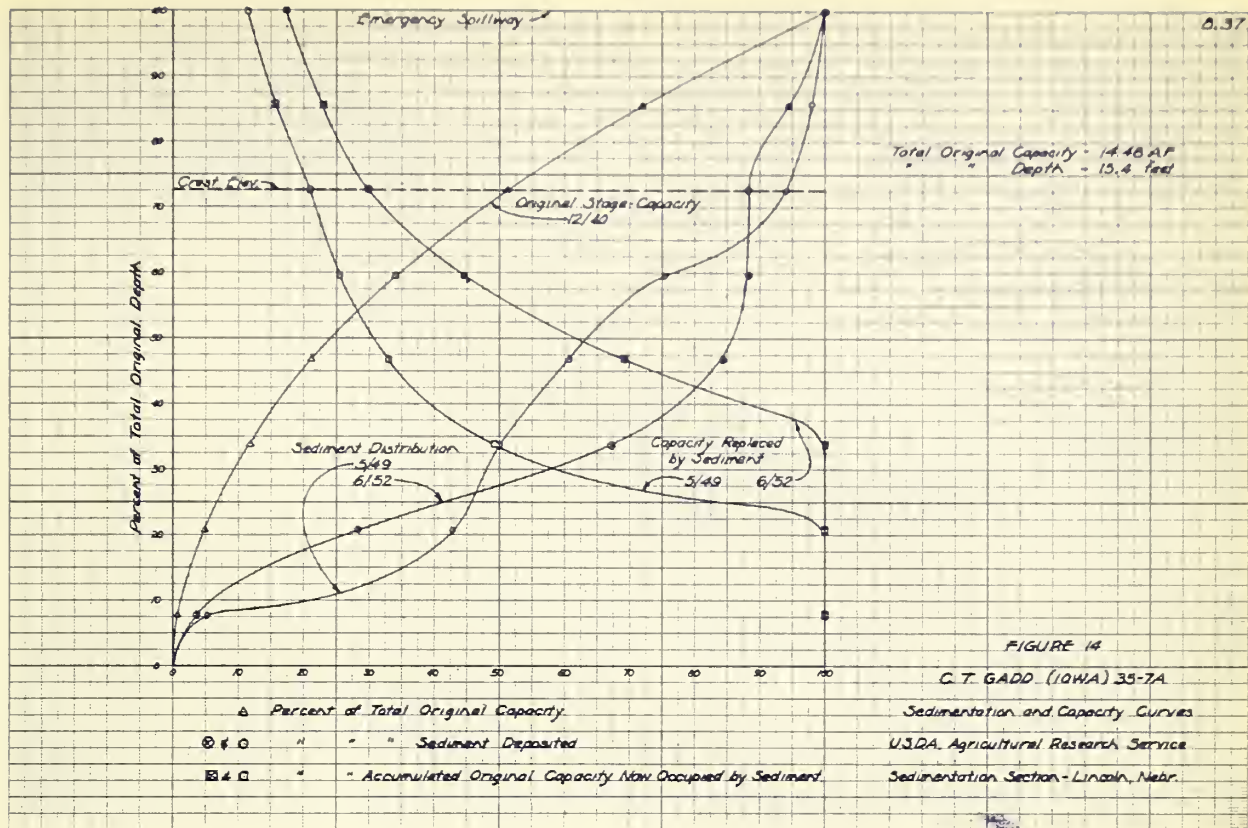 Emergency Spillway
8.37
Total Original Capacity - 14.48 AF
" " Depth - 15.4 feet
Crest Elev.
Original Stage-Capacity
12/40
Percent of Total Original Depth
Sediment Distribution
5/49
6/52
Capacity Replaced
by Sediment
5/49 6/52
100
90
80
70
60
50
40
30
20
10
0
0 10 20 30 40 50 60 70 80 90 100
Percent of Total Original Capacity
" " " Sediment Deposited
" " Accumulated Original Capacity Now Occupied by Sediment
FIGURE 14
C. T. GADD (IOWA) 35-7A
Sedimentation and Capacity Curves
U.S.D.A. Agricultural Research Service
Sedimentation Section - Lincoln, Nebr.